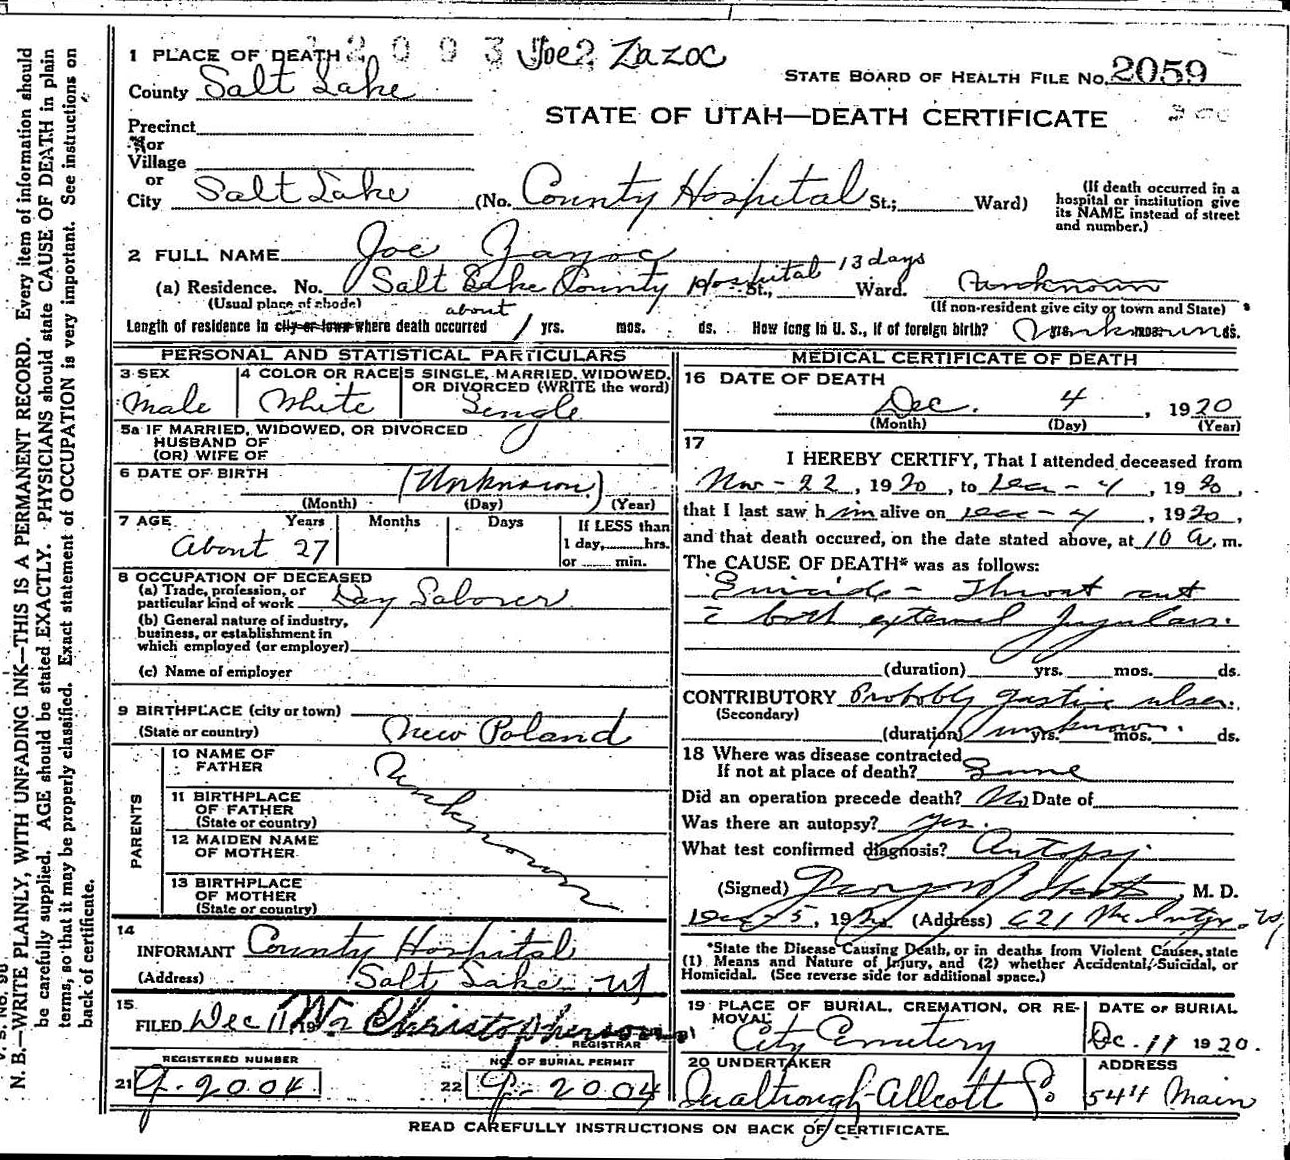 1 PLACE OF DEATH 12093 Joe? Zazoc
STATE BOARD OF HEALTH FILE NO. 2059
County Salt Lake
STATE OF UTAH—DEATH CERTIFICATE
Precinct
or
Village
or
City Salt Lake (No. County Hospital St.; Ward)
(If death occurred in a hospital or institution give its NAME instead of street and number.)
2 FULL NAME Joe Zazoc
(a) Residence. No. Salt Lake County Hospital 13 days St., Ward. unknown
(Usual place of abode) (If non-resident give city or town and State)
Length of residence in city or town where death occurred about 1 yrs. mos. ds. How long in U. S., if of foreign birth? Unknown yrs. mos. ds.
PERSONAL AND STATISTICAL PARTICULARS
3 SEX Male
4 COLOR OR RACE White
5 SINGLE, MARRIED, WIDOWED, OR DIVORCED (WRITE the word) Single
5a IF MARRIED, WIDOWED, OR DIVORCED
HUSBAND OF
(OR) WIFE OF
6 DATE OF BIRTH (Unknown)
(Month) (Day) (Year)
7 AGE Years Months Days If LESS than
About 27 1 day, hrs.
or min.
8 OCCUPATION OF DECEASED
(a) Trade, profession, or
particular kind of work Day Laborer
(b) General nature of industry,
business, or establishment in
which employed (or employer)
(c) Name of employer
9 BIRTHPLACE (city or town)
(State or country) New Poland
PARENTS
10 NAME OF FATHER Unknown
11 BIRTHPLACE OF FATHER
(State or country)
12 MAIDEN NAME OF MOTHER
13 BIRTHPLACE OF MOTHER
(State or country)
14
INFORMANT County Hospital
(Address) Salt Lake Ut
15
FILED Dec 11 19 Wm Christopherson
REGISTRAR
REGISTERED NUMBER NO. OF BURIAL PERMIT
21 9-2004 22 9-2004
MEDICAL CERTIFICATE OF DEATH
16 DATE OF DEATH
Dec. 4, 1920
(Month) (Day) (Year)
17
I HEREBY CERTIFY, That I attended deceased from
Nov - 22, 1920, to Dec - 4, 1920,
that I last saw him alive on Dec - 4, 1920,
and that death occured, on the date stated above, at 10 a. m.
The CAUSE OF DEATH* was as follows:
Suicide - Throat cut
c̄ both external jugulars.
(duration) yrs. mos. ds.
CONTRIBUTORY Probably gastric ulser.
(Secondary)
(duration) unknown yrs. mos. ds.
18 Where was disease contracted
If not at place of death? Same
Did an operation precede death? No Date of
Was there an autopsy? yes.
What test confirmed diagnosis? Autopsy
(Signed) M. D.
Dec - 5, 192 (Address) 621 McIntyre
*State the Disease Causing Death, or in deaths from Violent Causes, state
(1) Means and Nature of Injury, and (2) whether Accidental, Suicidal, or
Homicidal. (See reverse side for additional space.)
19 PLACE OF BURIAL, CREMATION, OR REMOVAL DATE OF BURIAL
City Cemetery Dc. 11 1920.
20 UNDERTAKER ADDRESS
Qualtrough-Allcott Co 544 Main
READ CAREFULLY INSTRUCTIONS ON BACK OF CERTIFICATE.
V. S. No. 98
N. B.—WRITE PLAINLY, WITH UNFADING INK—THIS IS A PERMANENT RECORD. Every item of information should
be carefully supplied. AGE should be stated EXACTLY. PHYSICIANS should state CAUSE OF DEATH in plain
terms, so that it may be properly classified. Exact statement of OCCUPATION is very important. See instructions on
back of certificate.